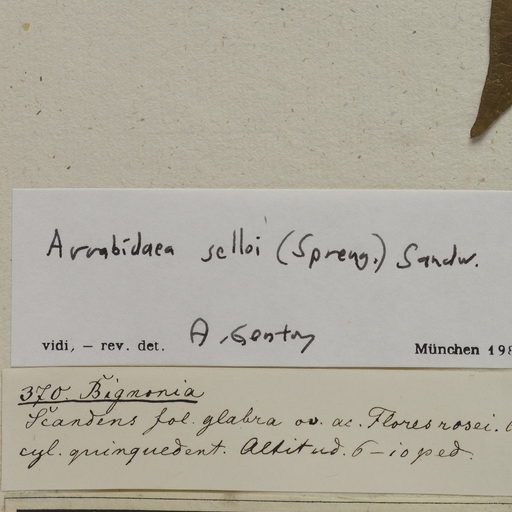 Arrabidaea selloi (Spreng.) Sandw.
A. Gentry
vidi, – rev. det.
München 198
370. Bignonia
Scandens fol. glabra ov. ac. Flores rosei.
cyl. quinquedent. Altitud. 6–10 ped.